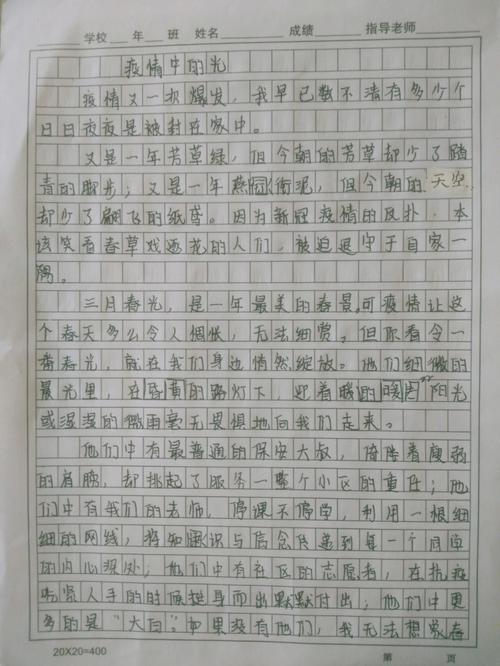 学校 年 班 姓名 成绩 指导老师
疫情中的光
疫情又一次爆发，我早已数不清有多少个
日日夜夜是被封在家中。
又是一年芳草绿，但今朝的芳草却少了踏
青的脚步；又是一年燕回衔泥，但今朝的天空
却少了翩飞的纸鸢。因为新冠疫情的反扑，本
该笑看春草戏逐花的人们，被迫退守于自家一
隅。
三月春光，是一年最美的春景，可疫情让这
个春天多么令人惆怅，无法细赏。但你看令一
番春光，就在我们身边悄然绽放。他们细微的
晨光里，在昏黄的路灯下，迎着暖的暖阳光
或湿湿的微雨毫无畏惧地向我们走来。
他们中有最普通的保安大叔，倚阵着瘦弱
的肩膀，却挑起了服务一整个小区的重任；他
们中有我们的老师，停课不停学，利用一根细
细的网线，将知识与信念传递到每一个同学
的内心深处；他们中有社区的志愿者，在抗疫
吃紧人手的时候挺身而出默默付出；他们中更
多的是“大白”。如果没有他们，我无法想象春
20X20=400
第 页